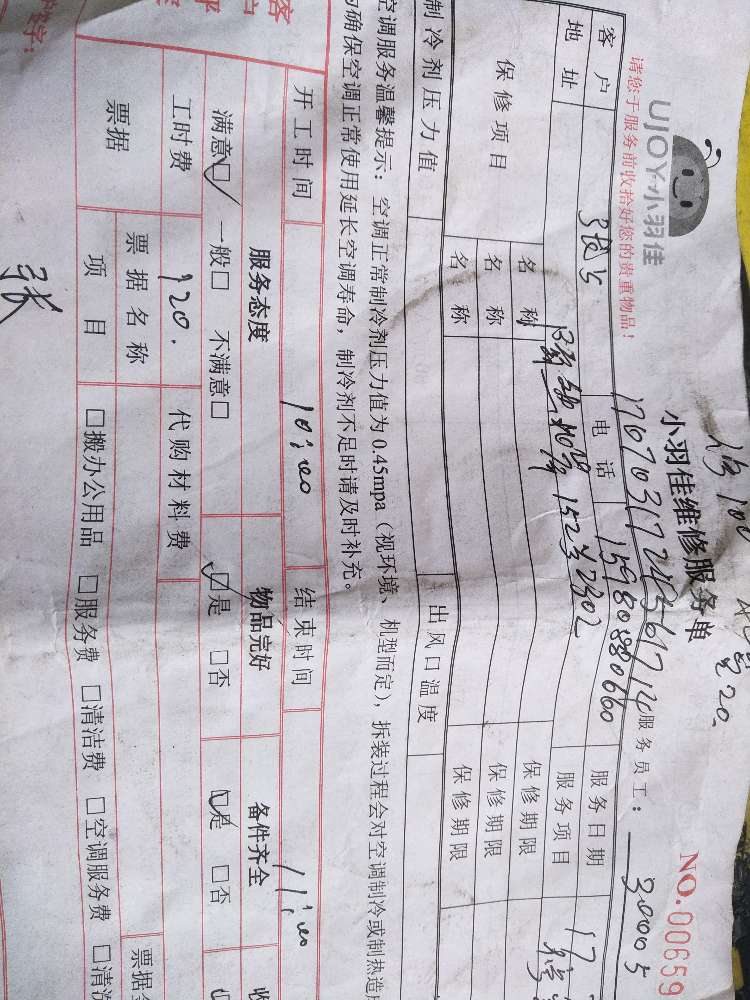 UJOY·小羽佳
请您于服务前收拾好您的贵重物品！
小羽佳维修服务单
NO. 00659
服务员工： 30005
客 户
电 话 15980880660
服务日期 17
地 址
服务项目
保修项目
名 称
保修期限
名 称
保修期限
名 称
保修期限
制冷剂压力值
出风口温度
空调服务温馨提示：空调正常制冷剂压力值为0.45mpa（视环境、机型而定），拆装过程会对空调制冷或制热造
确保空调正常使用延长空调寿命，制冷剂不足时请及时补充。
开工时间 10:00 结束时间 11:00
服务态度 物品完好 备件齐全
满意□ 一般□ 不满意□ □是 □否 □是 □否
工时费 920. 代购材料费
票据
票据名称
票据
项 目
□搬办公用品 □服务费 □清洁费 □空调服务费 □清洗
张